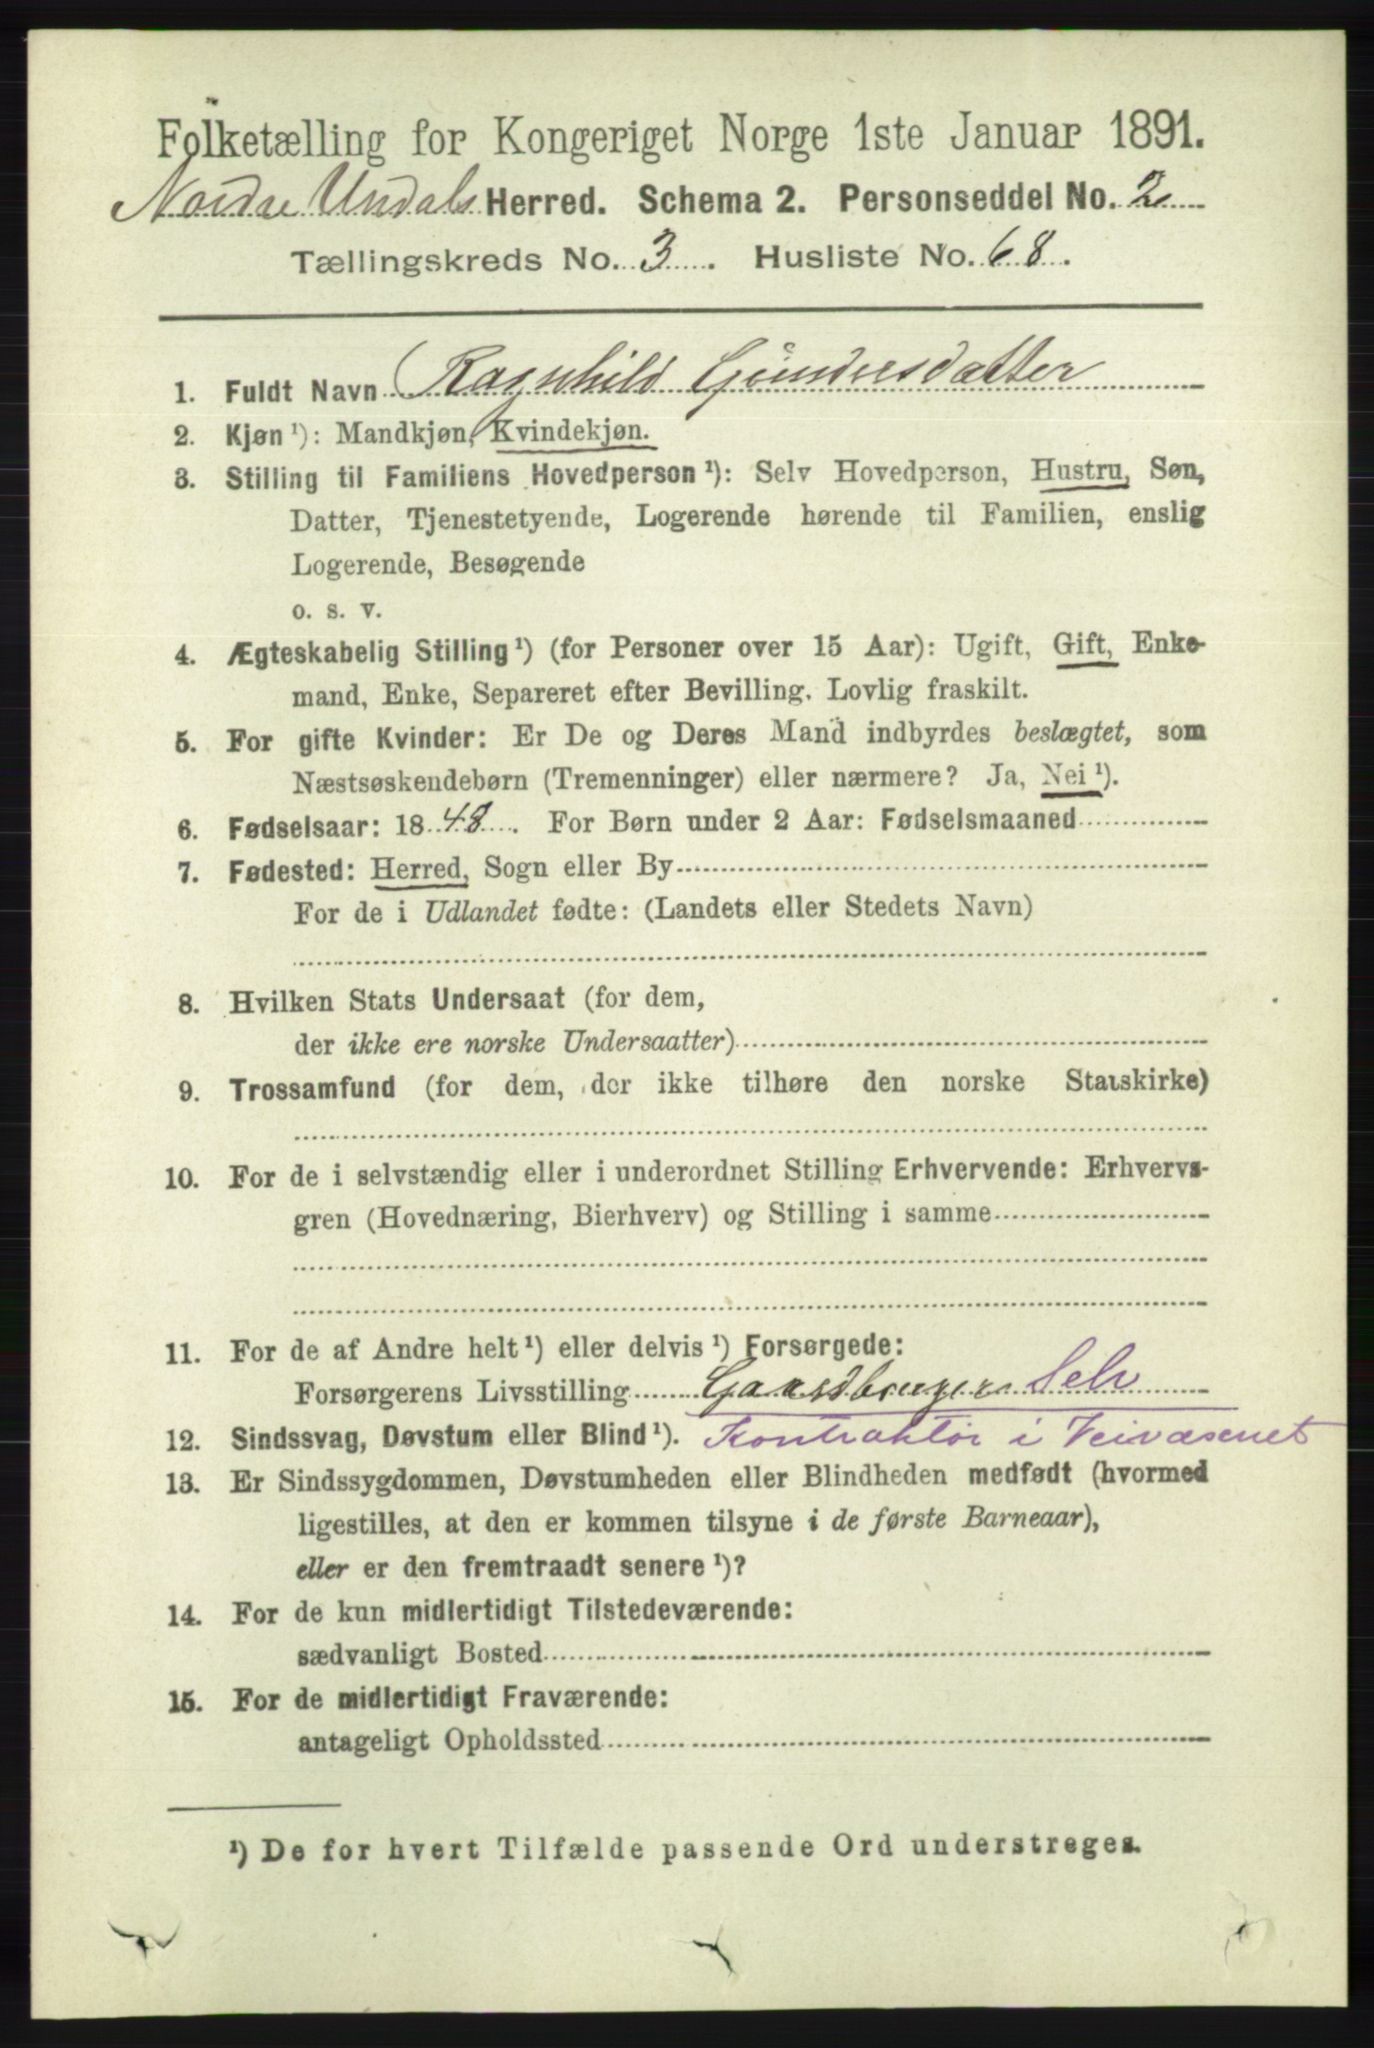 Folketælling for Kongeriget Norge 1ste Januar 1891.
Nordre Undals Herred. Schema 2. Personseddel No. 2
Tællingskreds No. 3. Husliste No. 68.
1. Fuldt Navn Ragnhild Gundersdatter
2. Kjøn ¹): Mandkjøn, Kvindekjøn.
3. Stilling til Familiens Hovedperson ¹): Selv Hovedperson, Hustru, Søn,
Datter, Tjenestetyende, Logerende hørende til Familien, enslig
Logerende, Besøgende
o. s. v.
4. Ægteskabelig Stilling ¹) (for Personer over 15 Aar): Ugift, Gift, Enke-
mand, Enke, Separeret efter Bevilling. Lovlig fraskilt.
5. For gifte Kvinder: Er De og Deres Mand indbyrdes beslægtet, som
Næstsøskendebørn (Tremenninger) eller nærmere? Ja, Nei ¹).
6. Fødselsaar: 1848. For Børn under 2 Aar: Fødselsmaaned
7. Fødested: Herred, Sogn eller By
For de i Udlandet fødte: (Landets eller Stedets Navn)
8. Hvilken Stats Undersaat (for dem,
der ikke ere norske Undersaatter)
9. Trossamfund (for dem, der ikke tilhøre den norske Statskirke)
10. For de i selvstændig eller i underordnet Stilling Erhvervende: Erhvervs-
gren (Hovednæring, Bierhverv) og Stilling i samme
11. For de af Andre helt ¹) eller delvis ¹) Forsørgede:
Forsørgerens Livsstilling Gaardbruger Selv
12. Sindssvag, Døvstum eller Blind ¹). Kontraktør i Veivæsenet
13. Er Sindssygdommen, Døvstumheden eller Blindheden medfødt (hvormed
ligestilles, at den er kommen tilsyne i de første Barneaar),
eller er den fremtraadt senere ¹)?
14. For de kun midlertidigt Tilstedeværende:
sædvanligt Bosted
15. For de midlertidigt Fraværende:
antageligt Opholdssted
¹) De for hvert Tilfælde passende Ord understreges.